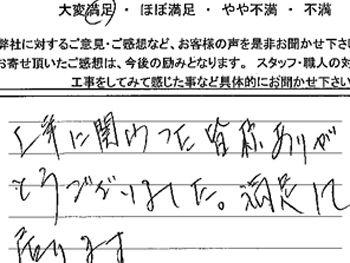 大変満足 ・ ほぼ満足 ・ やや不満 ・ 不満
弊社に対するご意見・ご感想など、お客様の声を是非お聞かせ下さい
お寄せ頂いたご感想は、今後の励みとなります。 スタッフ・職人の対
工事をしてみて感じた事など具体的にお聞かせ下さい
工事に関わった皆様ありが
とうございました。満足して
居ります